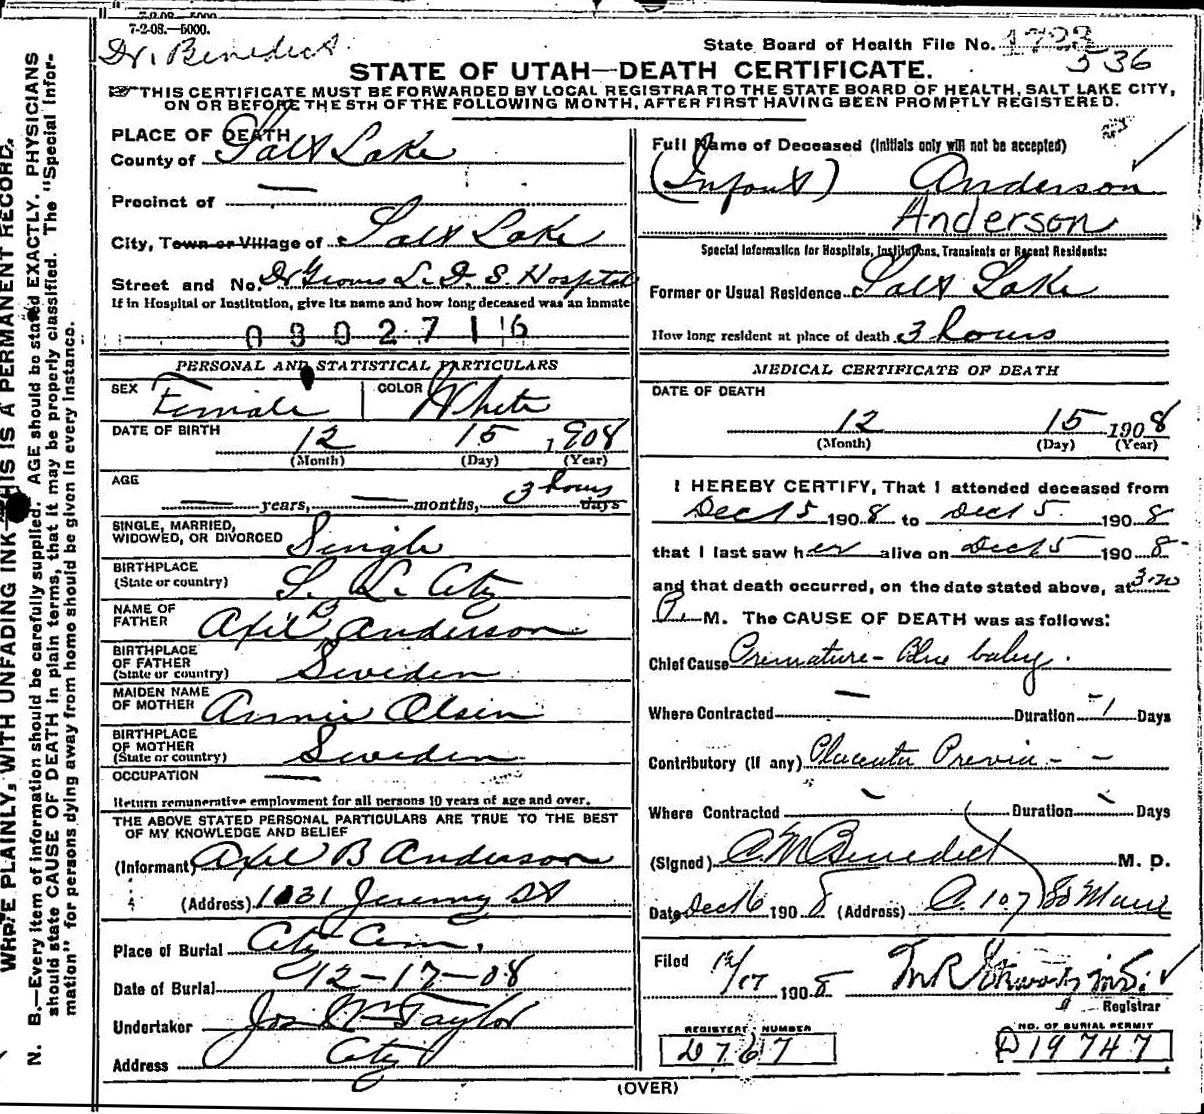 7-2-08.—5000.
Dr. Benedict
State Board of Health File No. 1723
536
STATE OF UTAH—DEATH CERTIFICATE.
THIS CERTIFICATE MUST BE FORWARDED BY LOCAL REGISTRAR TO THE STATE BOARD OF HEALTH, SALT LAKE CITY,
ON OR BEFORE THE 5TH OF THE FOLLOWING MONTH, AFTER FIRST HAVING BEEN PROMPTLY REGISTERED.
WRITE PLAINLY, WITH UNFADING INK—THIS IS A PERMANENT RECORD.
N. B.—Every item of information should be carefully supplied. AGE should be stated EXACTLY. PHYSICIANS
should state CAUSE OF DEATH in plain terms, that it may be properly classified. The "Special Infor-
mation" for persons dying away from home should be given in every instance.
PLACE OF DEATH
County of Salt Lake
Precinct of —
City, Town or Village of Salt Lake
Street and No. Dr Groves L. D. S. Hospital
If in Hospital or Institution, give its name and how long deceased was an inmate
0302716
PERSONAL AND STATISTICAL PARTICULARS
SEX Female COLOR White
DATE OF BIRTH 12 15 1908
(Month) (Day) (Year)
AGE — years, — months, 3 hours days
SINGLE, MARRIED,
WIDOWED, OR DIVORCED Single
BIRTHPLACE
(State or country) S. L. City
NAME OF
FATHER Axil B Anderson
BIRTHPLACE
OF FATHER
(State or country) Sweden
MAIDEN NAME
OF MOTHER Annie Olsen
BIRTHPLACE
OF MOTHER
(State or country) Sweden
OCCUPATION —
Return remunerative employment for all persons 10 years of age and over.
THE ABOVE STATED PERSONAL PARTICULARS ARE TRUE TO THE BEST
OF MY KNOWLEDGE AND BELIEF
(Informant) Axel B Anderson
(Address) 1031 Jeremy St
Place of Burial City Cem.
Date of Burial 12-17-08
Undertaker Jos Wm Taylor
Address City
Full Name of Deceased (Initials only will not be accepted)
(Infant) Anderson
Anderson
Special Information for Hospitals, Institutions, Transients or Recent Residents:
Former or Usual Residence Salt Lake
How long resident at place of death 3 hours
MEDICAL CERTIFICATE OF DEATH
DATE OF DEATH
12 15 1908
(Month) (Day) (Year)
I HEREBY CERTIFY, That I attended deceased from
Dec 15 1908 to Dec 15 1908
that I last saw her alive on Dec 15 1908
and that death occurred, on the date stated above, at 3.20
P. M. The CAUSE OF DEATH was as follows:
Chief Cause Premature - Blue baby.
Where Contracted — Duration 1 Days
Contributory (if any) Placenta Previa - -
Where Contracted Duration Days
(Signed) C M Benedict M. D.
Date Dec 16 1908 (Address) 107 So Main
Filed 12/17 1908 M.D.
Registrar
REGISTERED NUMBER
D767
NO. OF BURIAL PERMIT
D19747
(OVER)